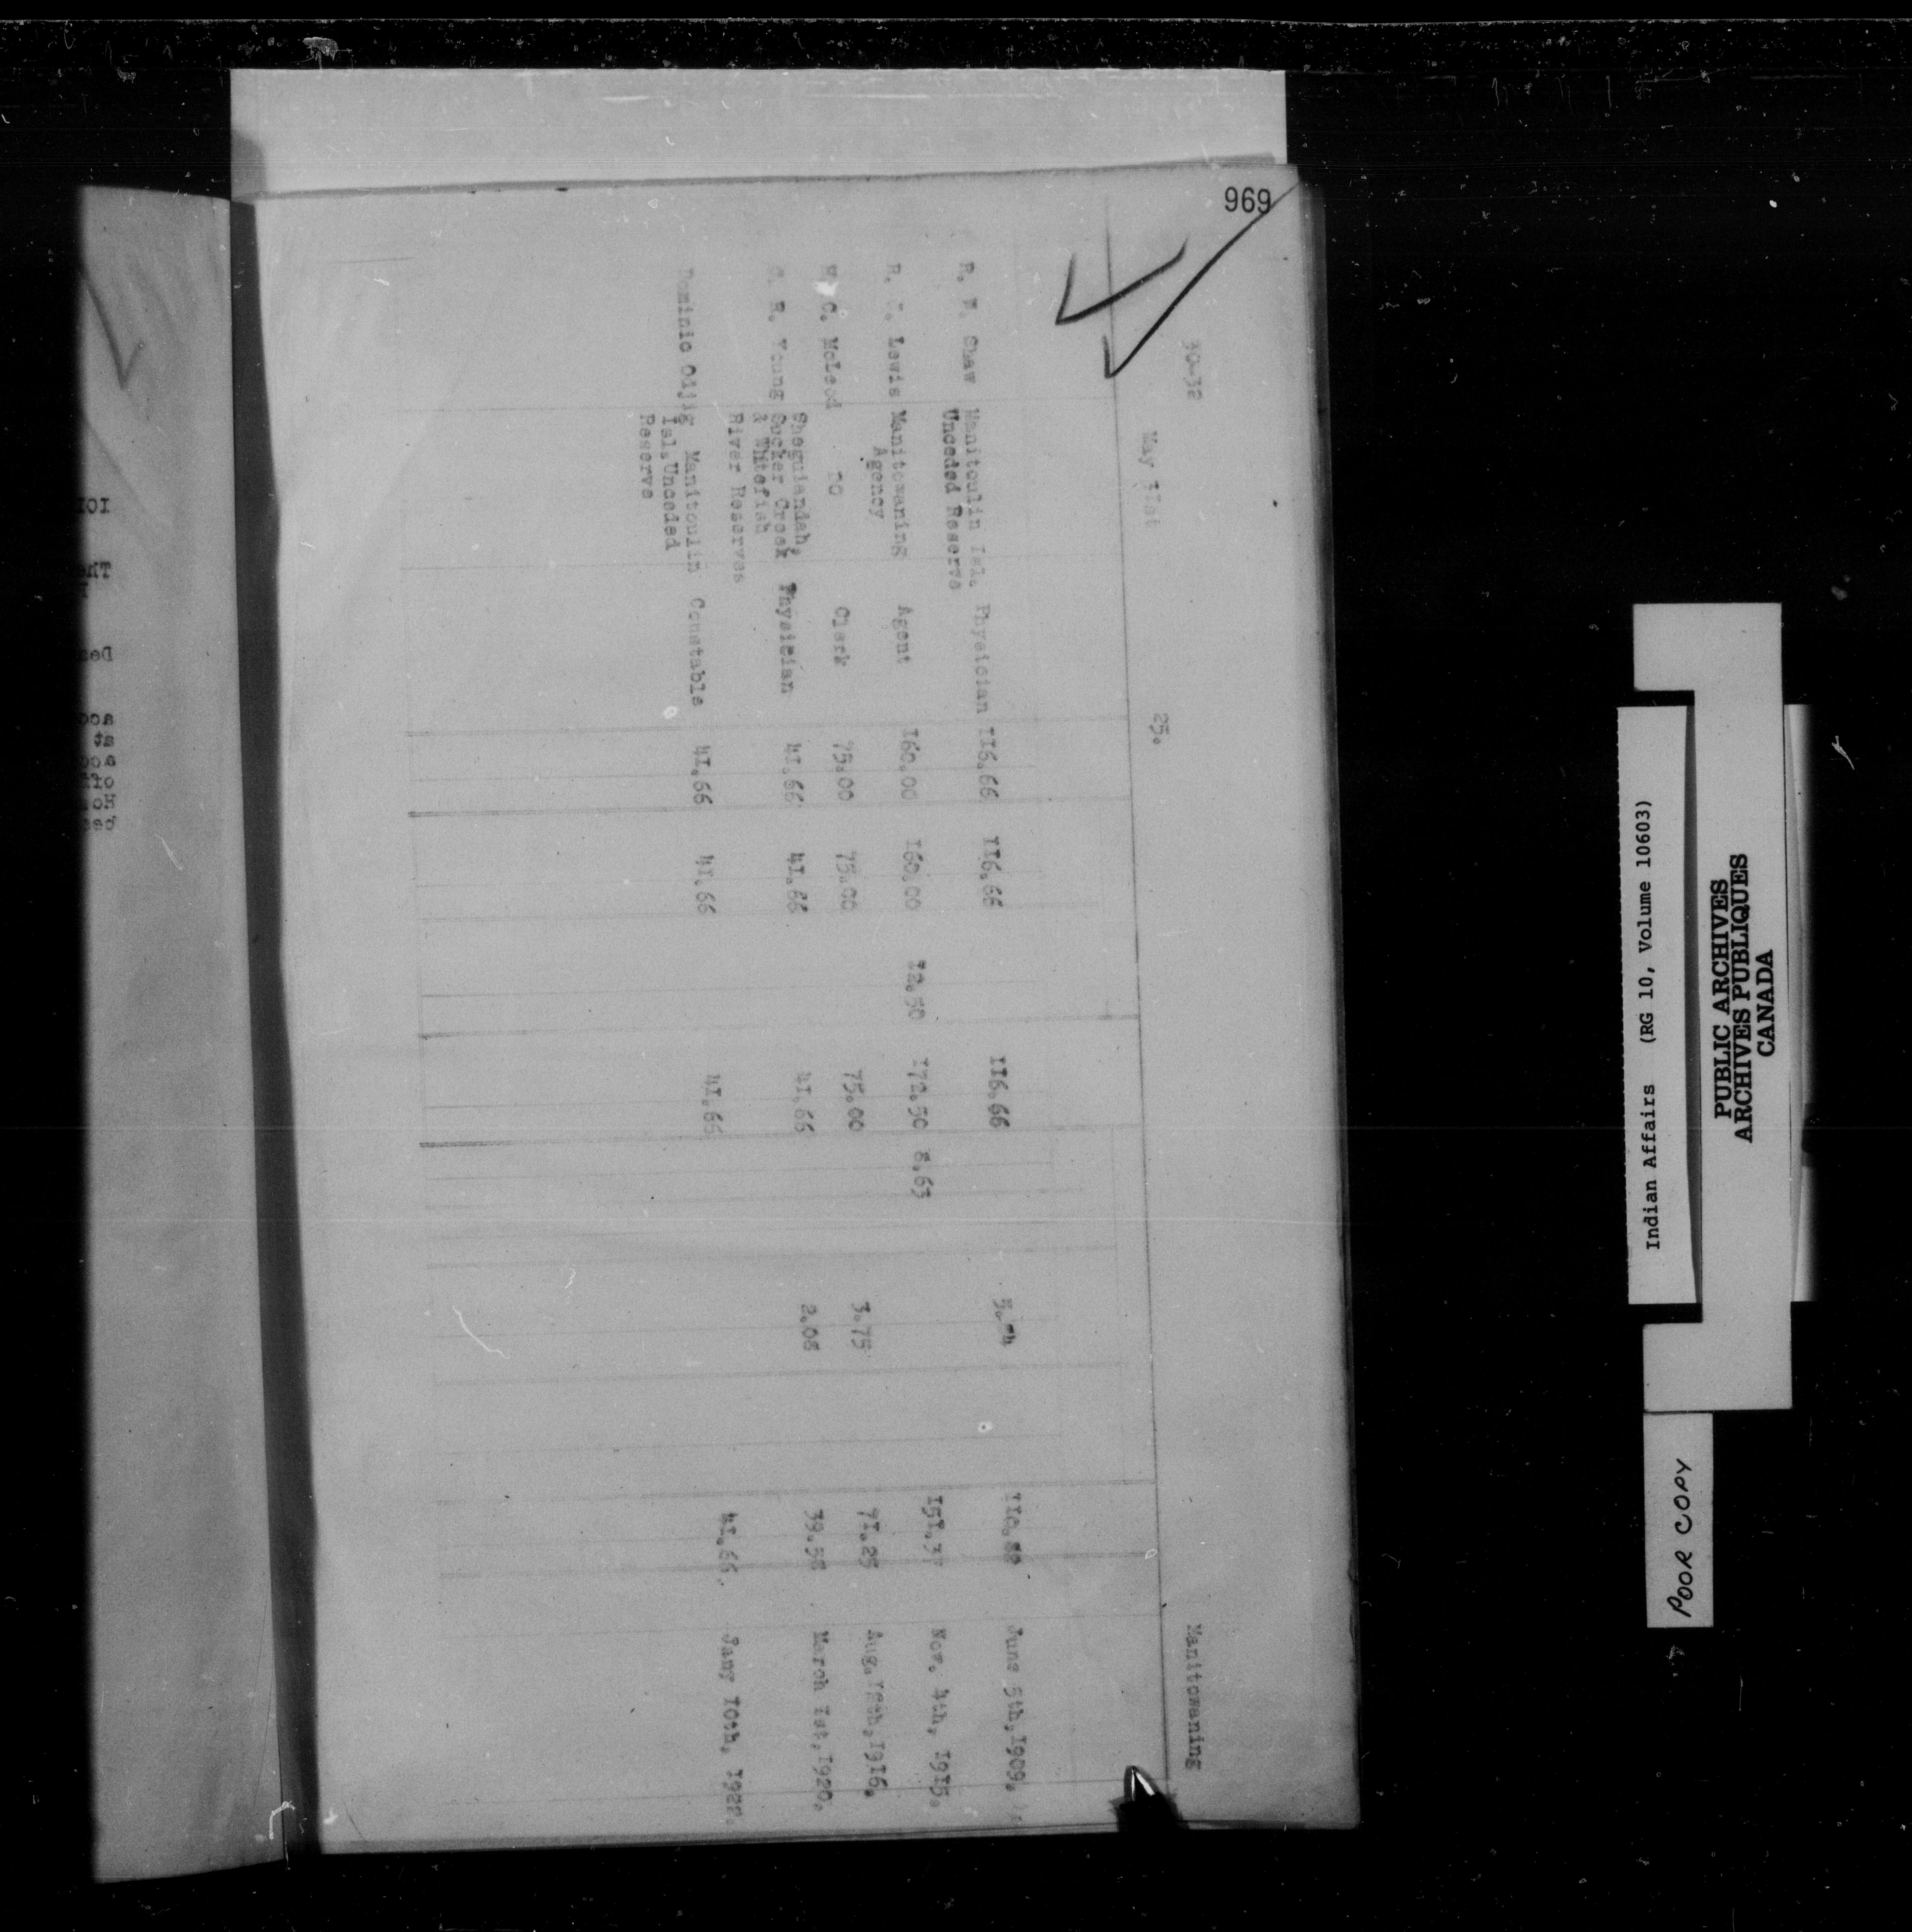 969
30-32
May 31st 25.
Manitowaning
R. W. Shaw Manitoulin Isl. Physician 116.66 116.66 116.66 110.82 June 5th, 1909.
Unceded Reserve
Lewis Manitowaning Agent 160.00 160.00 12.50 172.50 8.63 Nov. 4th, 1915.
Agency
C. McLeod DO Clerk 75.00 75.00 75.00 3.75 71.25 1916.
Sheguiandah,
R. Young Sucker Creek Physician 41.66 41.66 41.66 2.08 39.58 March 1st, 1920.
& Whitefish
River Reserves
Dominic Odjig Manitoulin Constable 41.66 41.66 41.66 41.66. Jany 10th, 1922.
Isl. Unceded
Reserve
Indian Affairs (RG 10, Volume 10603)
PUBLIC ARCHIVES
ARCHIVES PUBLIQUES
CANADA
POOR COPY